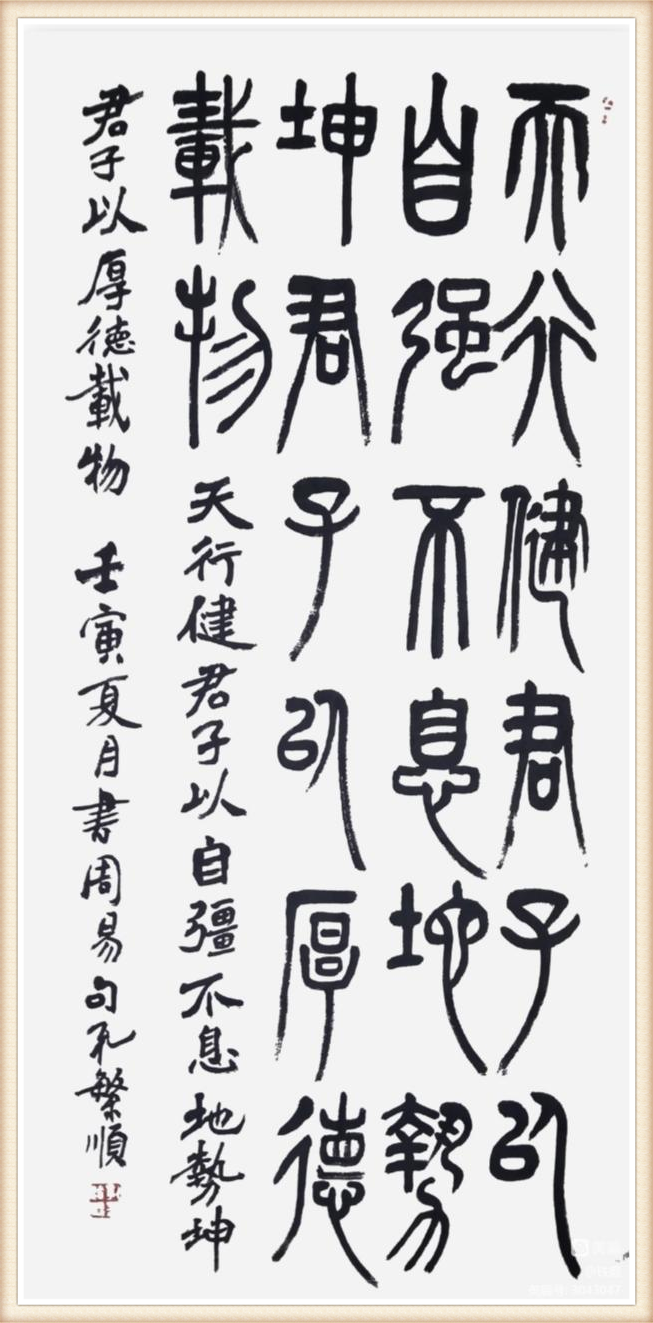 天行健君子以
自强不息地勢
坤君子以厚德
載物
天行健君子以自彊不息地勢坤
君子以厚德載物 壬寅夏月書周易句孔繁順